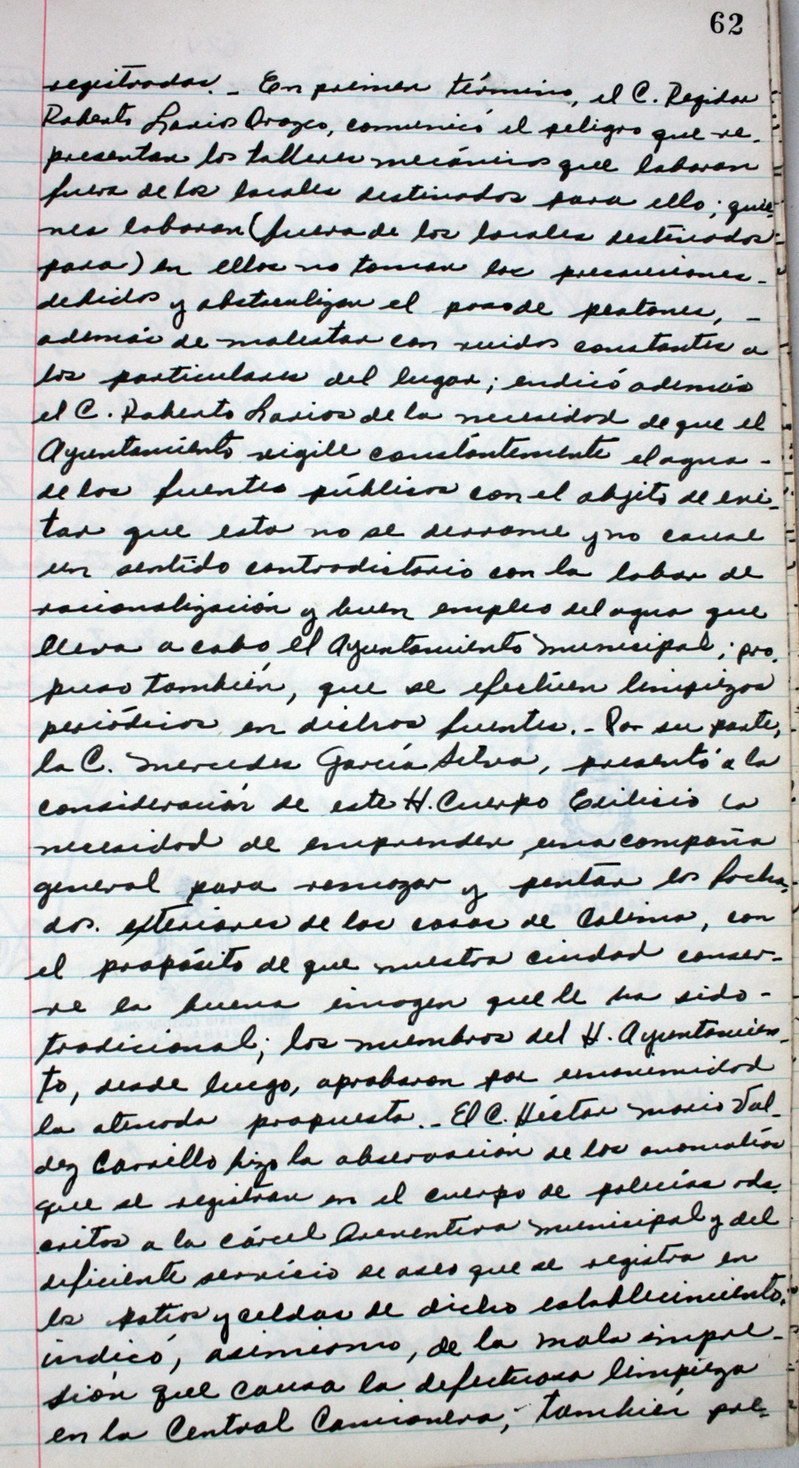 62
registradas.- En primer término, el C. Regidor
Roberto Larios Orozco, comunicó el peligro que re-
presentan los talleres mecánicos que laboran
fuera de los locales destinados para ello; quie-
nes laboran (fuera de los locales destinados-
para) en ellos no toman las precauciones-
debidas y obstaculizan el paso de peatones, -
además de molestar con ruidos constantes a
los particulares del lugar; indicó además
el C. Roberto Larios de la necesidad de que el
Ayuntamiento vigile constántemente el agua-
de las fuentes públicas con el objeto de evi-
tar que esta no se derrame y no cause
un sentido contradictorio con la labor de
racionalización y buen empleo del agua que
lleva a cabo el Ayuntamiento Municipal; pro-
puso también, que se efectúen limpiezas
periódicas en dichas fuentes.- Por su parte,
la C. Mercedes García Silva, presentó a la
consideración de este H. Cuerpo Edilicio la
necesidad de emprender una campaña
general para remozar y pintar las facha-
das. exteriores de las casas de Colima, con
el propósito de que nuestra ciudad conser-
ve la buena imagen que le ha sido-
tradicional; los miembros del H. Ayuntamien-
to, desde luego, aprobaron por unanimidad
la atinada propuesta.- El C. Héctor Mario Val-
dez Carrillo hizo la observación de las anomalías
que se registran en el cuerpo de policías ads-
critos a la cárcel Preventiva Municipal y del
deficiente servicio de aseo que se registra en
los patios y celdas de dicho establecimiento;
indicó, asimismo, de la mala impre-
sión que causa la defectuosa limpieza
en la Central Camionera; también pre-